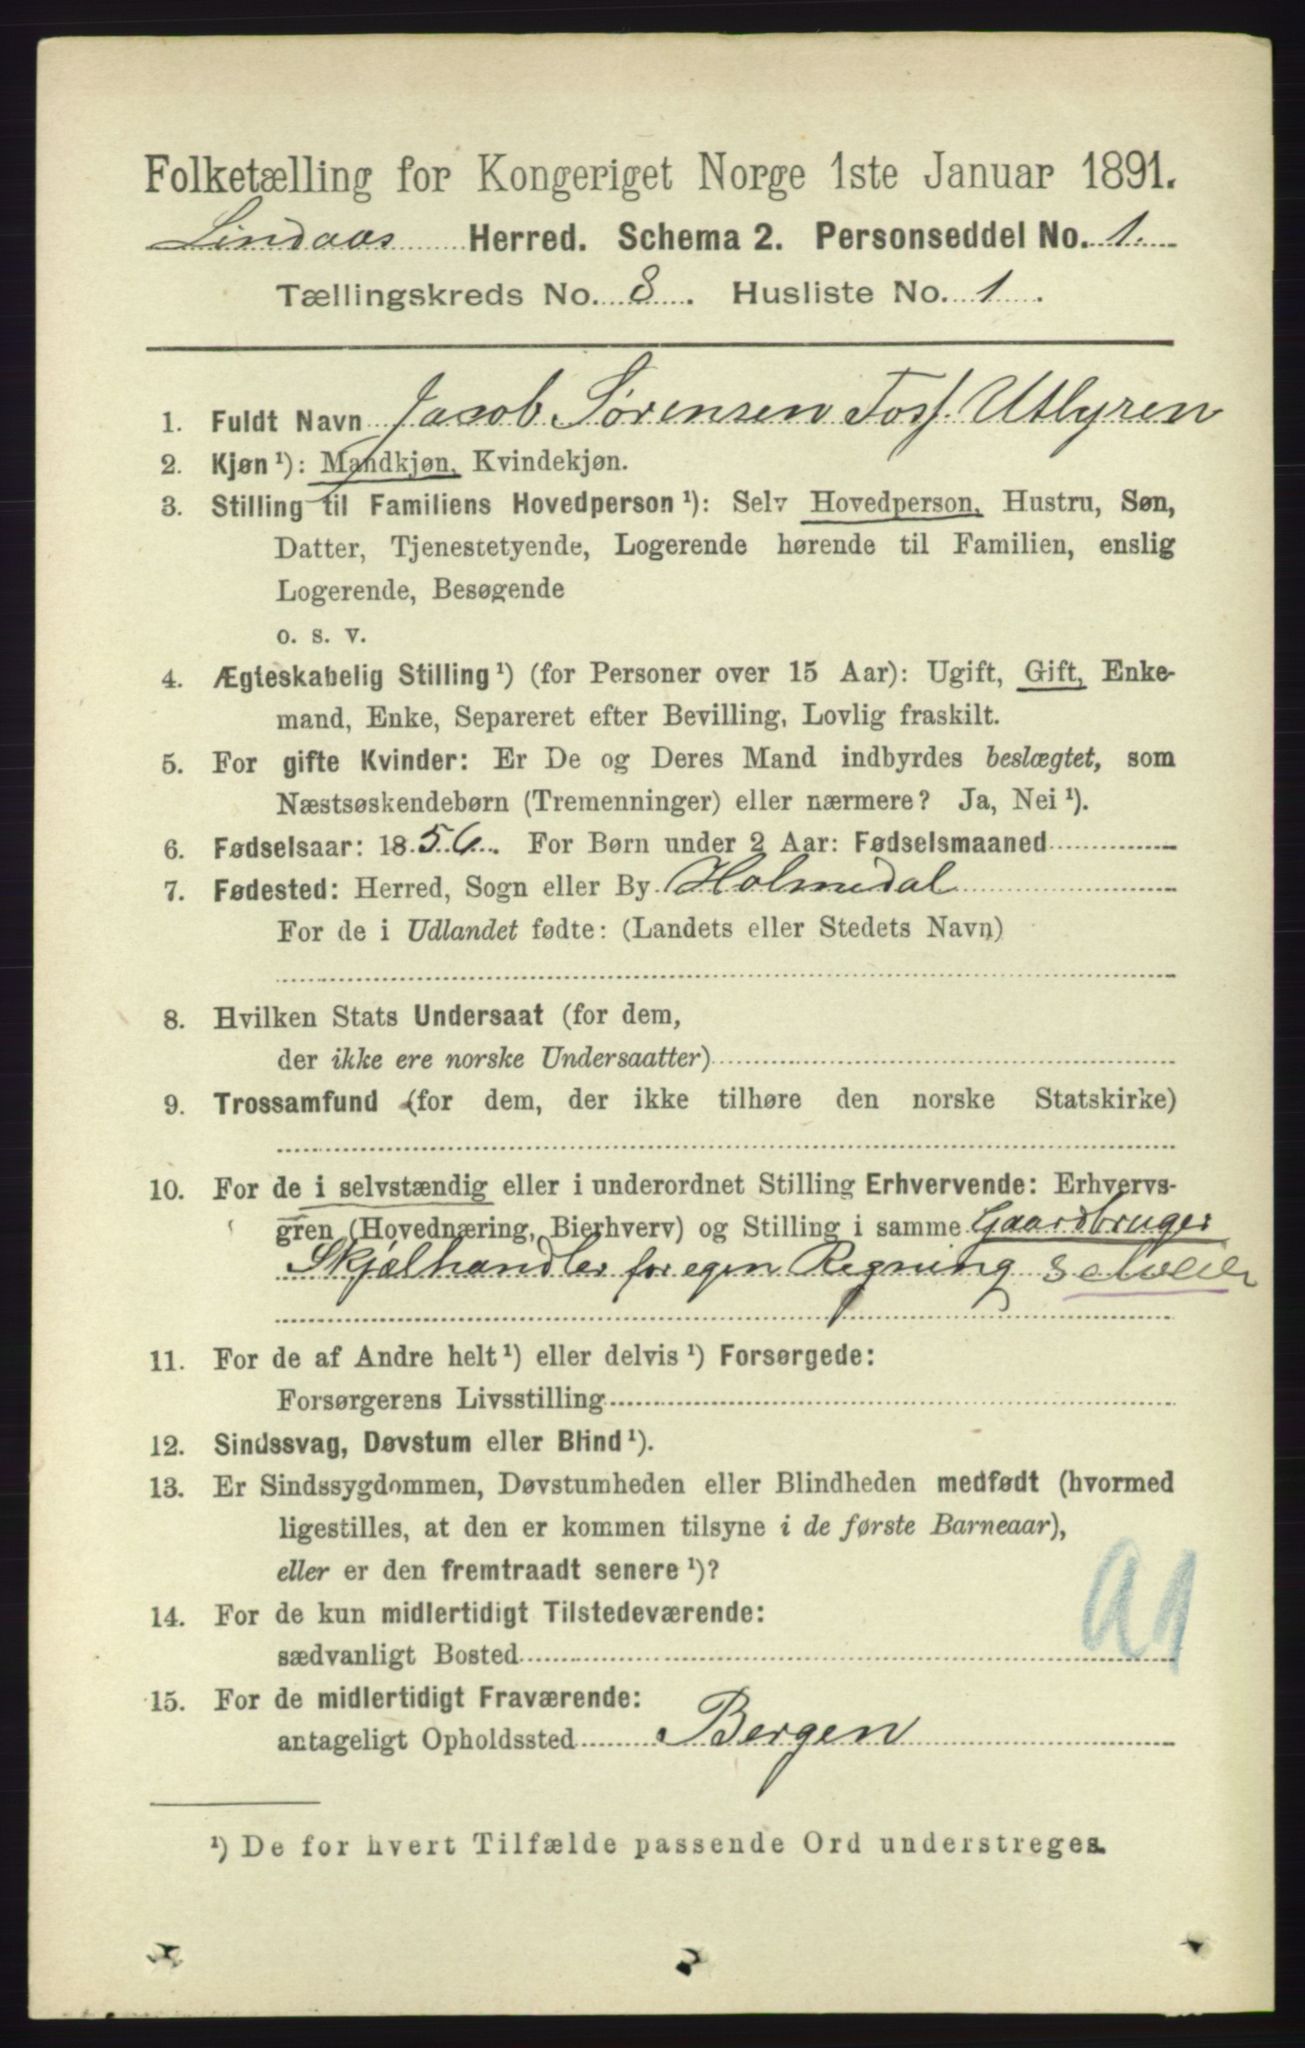 Folketælling for Kongeriget Norge 1ste Januar 1891.
Lindaas Herred. Schema 2. Personseddel No. 1.
Tællingskreds No. 8. Husliste No. 1.
1. Fuldt Navn Jacob Sørensen Utlyren
2. Kjøn ¹): Mandkjøn, Kvindekjøn.
3. Stilling til Familiens Hovedperson ¹): Selv Hovedperson, Hustru, Søn,
Datter, Tjenestetyende, Logerende hørende til Familien, enslig
Logerende, Besøgende
o. s. v.
4. Ægteskabelig Stilling ¹) (for Personer over 15 Aar): Ugift, Gift, Enke-
mand, Enke, Separeret efter Bevilling, Lovlig fraskilt.
5. For gifte Kvinder: Er De og Deres Mand indbyrdes beslægtet, som
Næstsøskendebørn (Tremenninger) eller nærmere? Ja, Nei ¹).
6. Fødselsaar: 1856. For Børn under 2 Aar: Fødselsmaaned
7. Fødested: Herred, Sogn eller By Holmedal
For de i Udlandet fødte: (Landets eller Stedets Navn)
8. Hvilken Stats Undersaat (for dem,
der ikke ere norske Undersaatter)
9. Trossamfund (for dem, der ikke tilhøre den norske Statskirke)
10. For de i selvstændig eller i underordnet Stilling Erhvervende: Erhvervs-
gren (Hovednæring, Bierhverv) og Stilling i samme Gaardbruger
Skjælhandler for egen Regning Selveier
11. For de af Andre helt ¹) eller delvis ¹) Forsørgede:
Forsørgerens Livsstilling
12. Sindssvag, Døvstum eller Blind ¹).
13. Er Sindssygdommen, Døvstumheden eller Blindheden medfødt (hvormed
ligestilles, at den er kommen tilsyne i de første Barneaar),
eller er den fremtraadt senere ¹)?
14. For de kun midlertidigt Tilstedeværende:
sædvanligt Bosted
15. For de midlertidigt Fraværende:
antageligt Opholdssted Bergen
¹) De for hvert Tilfælde passende Ord understreges.